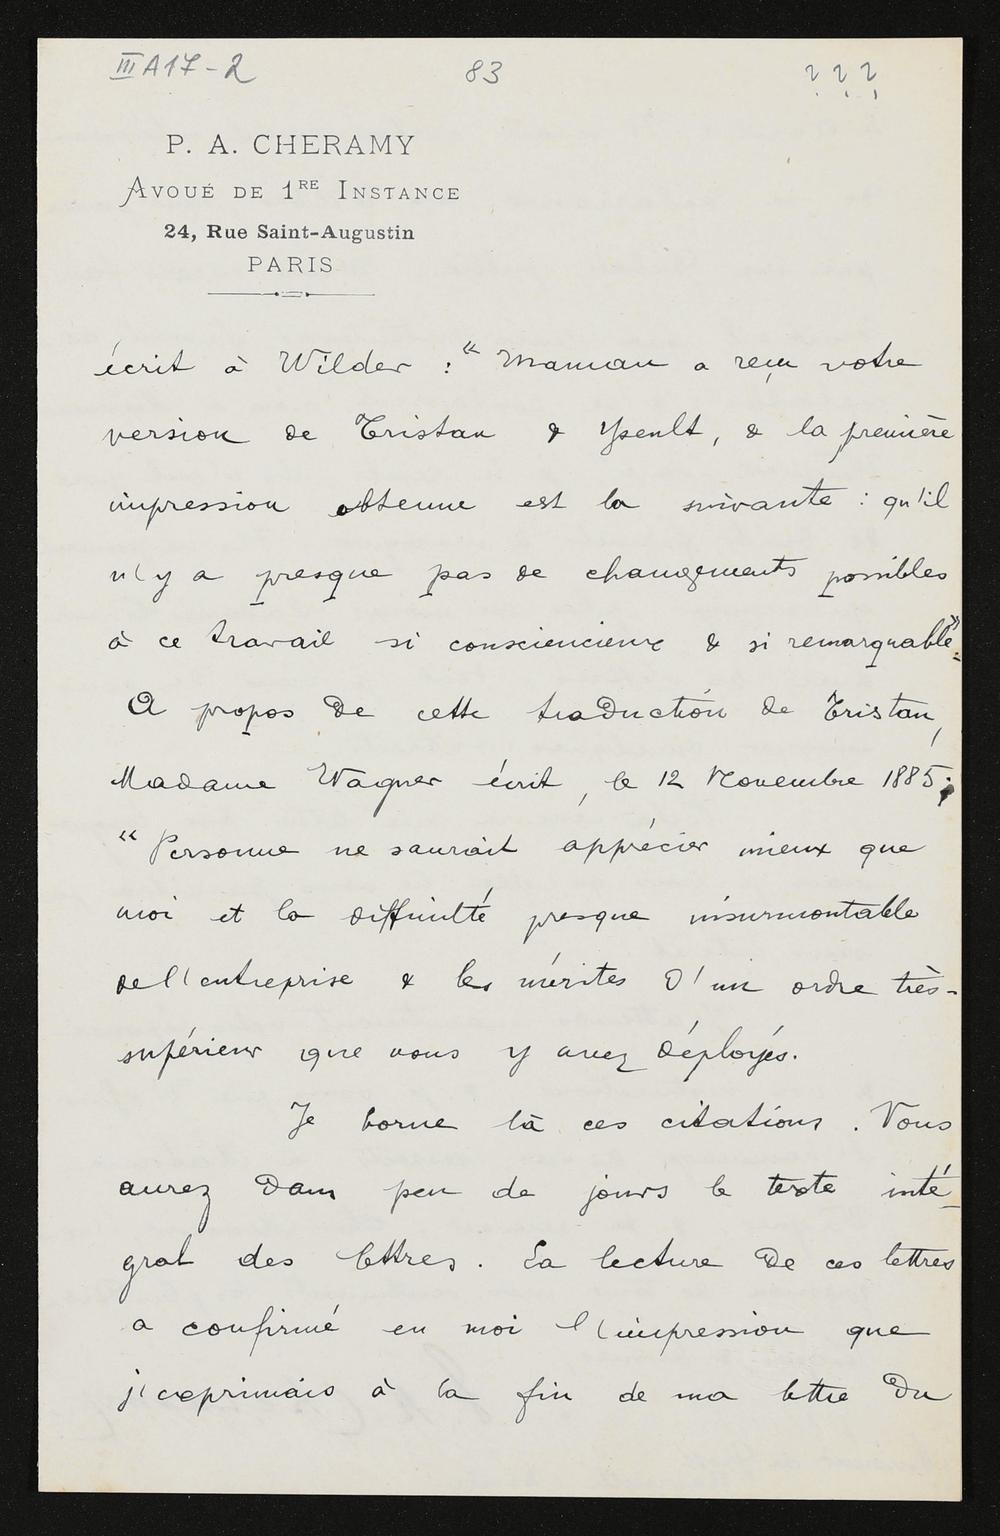 III A17-2 83 ? ? ?
P. A. CHERAMY
AVOUÉ DE 1RE INSTANCE
24, Rue Saint-Augustin
PARIS
écrit à Wilder : " Maman a reçu votre
version de Tristan & Yseult, & la première
impression obtenue est la suivante : qu'il
n'y a presque pas de changements possibles
à ce travail si consciencieux & si remarquable".
A propos de cette traduction de Tristan,
Madame Wagner écrit, le 12 Novembre 1885;
" Personne ne saurait apprécier mieux que
moi et la difficulté presque insurmontable
de l'entreprise & les mérites d'un ordre très-
supérieur que vous y avez déployés.
Je borne là ces citations. Vous
aurez dans peu de jours le texte inté-
gral des lettres. La lecture de ces lettres
a confirmé en moi l'impression que
j'exprimais à la fin de ma lettre du